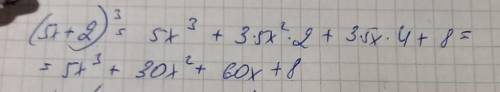 (5x+2)³ = 5x³ + 3·5x²·2 + 3·5x·4 + 8 =
= 5x³ + 30x² + 60x + 8